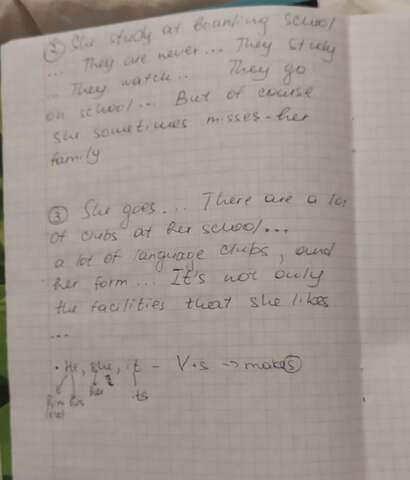 ② She study at boarding school
... They are never... They study
... They watch.. They go
on school... But of course
she sometimes misses her
family
③ She goes... There are a lot
of clubs at her school...
a lot of language clubs, and
her form... It's not only
the facilities that she likes
...
• He, she, it - V+s → makes
his her its